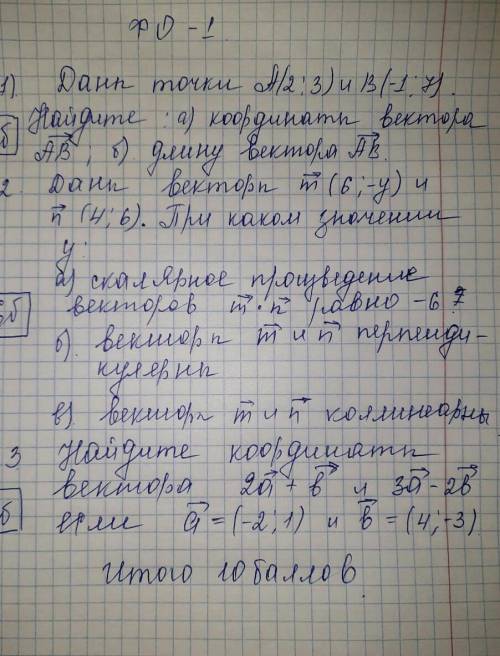 ФО -1
1). Дани точки А(2; 3) и В(-1; 7).
Найдите: а) координати вектора
б АВ, б) длину вектора АВ.
2. Дани вектори m (6; -y) и
n (4; 6). При каком значении
y:
а) скалярное произведение
векторов m · n равно -6?
б б). вектори m и n перпенди-
кулярни
в) вектори m и n коллинеарны
3 Найдите координати
вектора 2а + b и 3а - 2b
б если а = (-2; 1) и b = (4; -3)
Итого 10 баллов